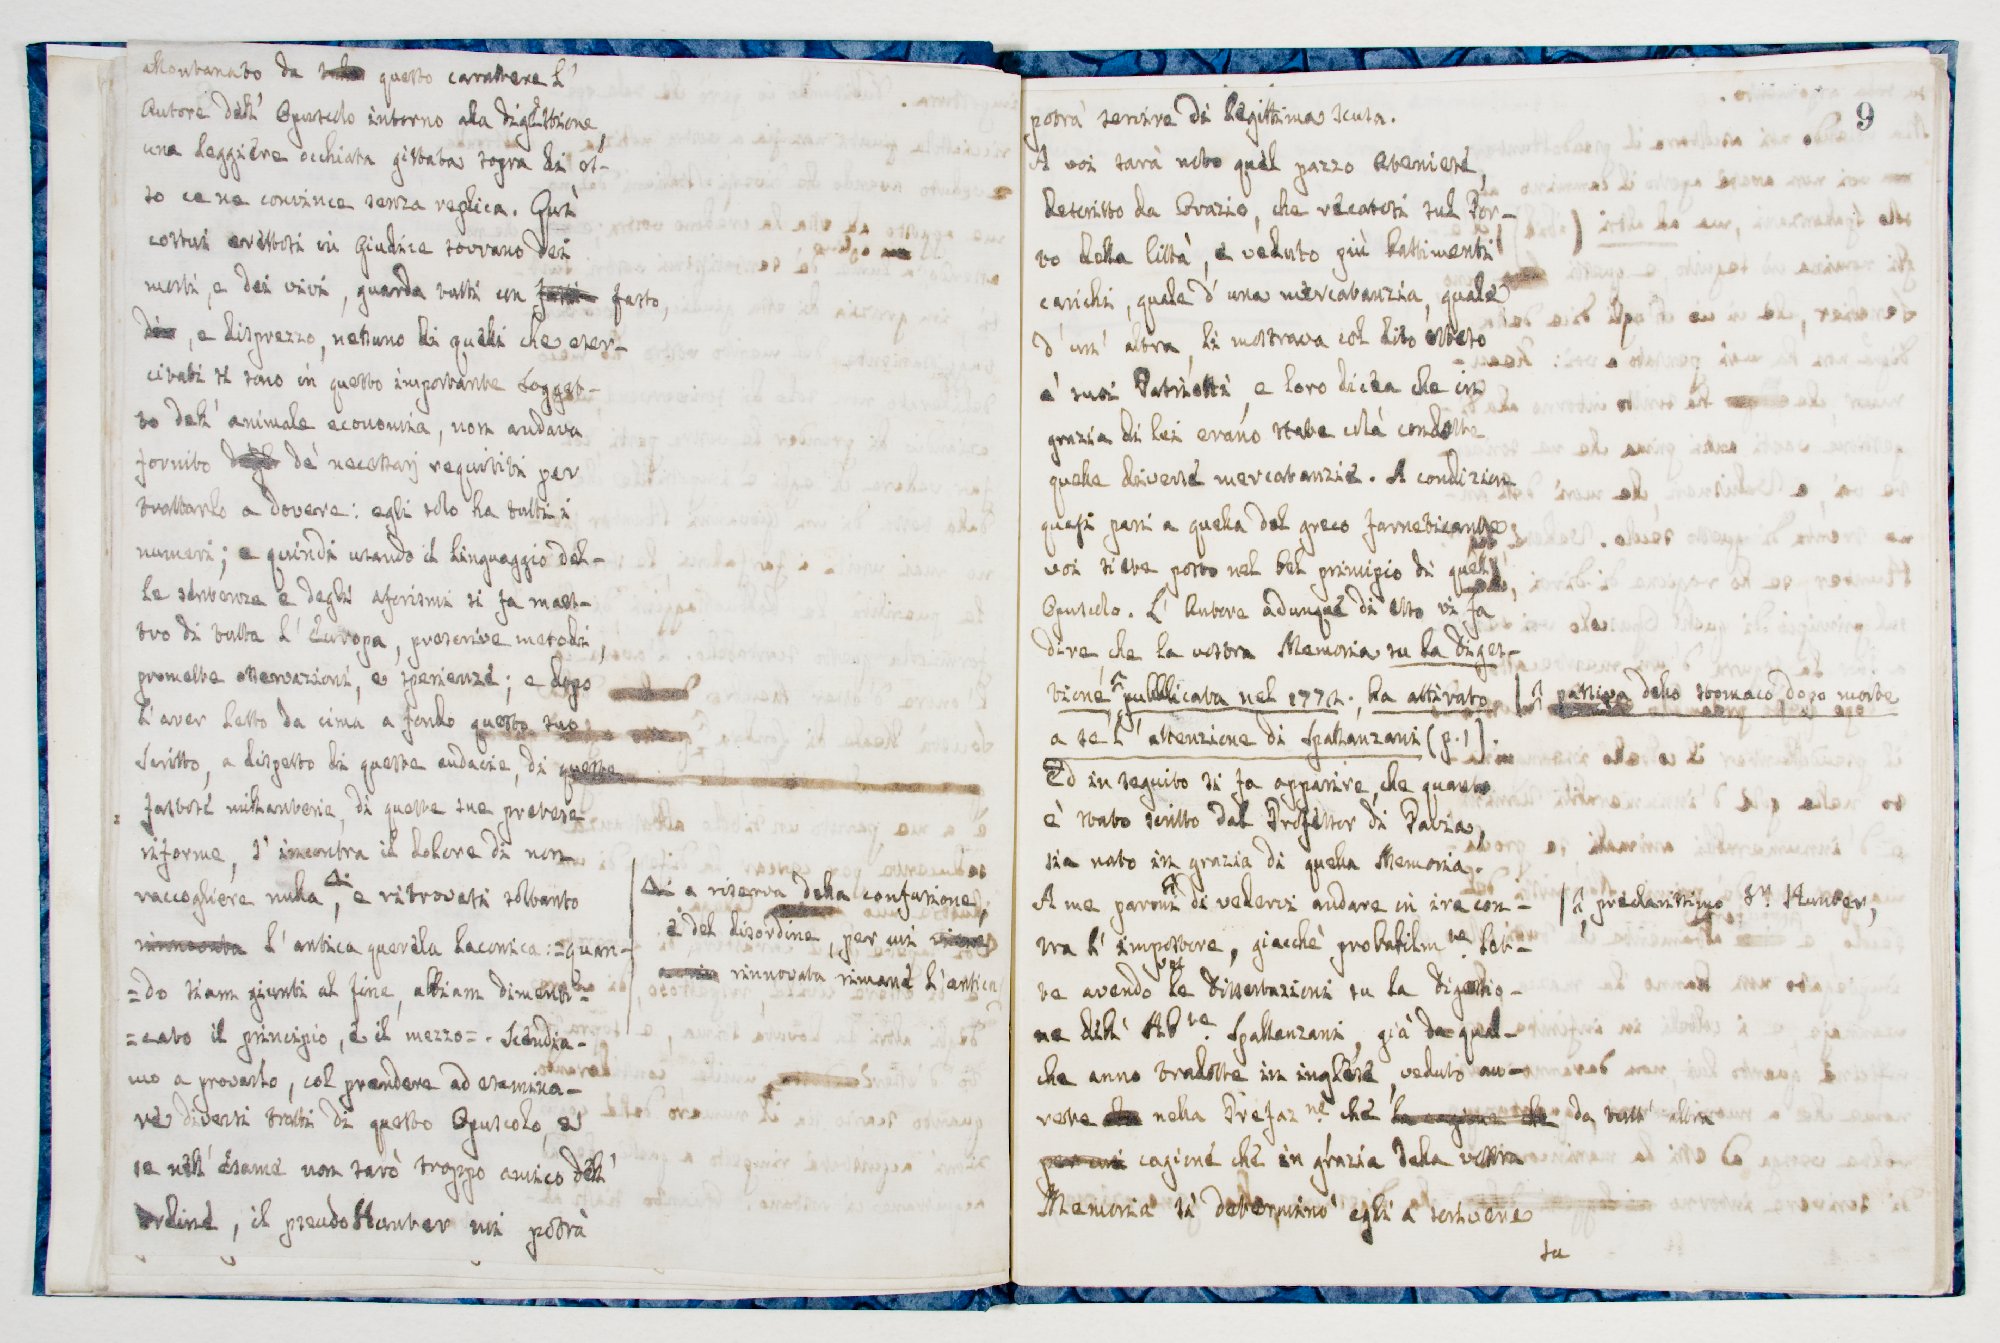 allontanato da questo carattere l'
Autore dell' Opuscolo intorno alla digestione,
una leggiere occhiata gittata sopra di es-
so ce ne convince senza replica. Quivi
costui erettosi in Giudice sovrano dei
morti, e dei vivi, guarda tutti con fasto,
e disprezzo, nessuno di quelli che eser-
citati si sono in questo importante sogget-
to dell' animale economia, non andava
fornito de' necessarj requisiti per
trattarlo a dovere: egli solo ha tutti i
numeri; e quindi usando il linguaggio del-
le sentenze e degli aforismi si fa maes-
tro di tutta l' Europa, prescrive metodi,
promette osservazioni, e sperienze; e dopo
l' aver letto da cima a fondo questo suo
Scritto, a dispetto di queste audacie, di queste
fastose millanterie, di queste sue pretese
riforme, s' incontra il dolore di non
raccogliere nulla, e ritrovasi soltanto
rinnovata l' antica querela laconica: =quan-
=do siam giunti al fine, abbiam dimenti-
=cato il principio, e il mezzo=. Scendia-
mo a provarlo, col prendere ad esamina-
re diversi tratti di questo Opuscolo, e
se nell' esame non sarò troppo amico dell'
ordine, il pseudoHunter mi potrà
a riserva della confusione,
e del disordine, per cui
rinnovata rimane l' antica
9
potrà servire di legittima scusa.
A voi sarà noto quel pazzo Ateniese,
descritto da Orazio, che recatosi sul Por-
to della Città, e veduto più bastimenti
carichi, quale d' una mercatanzia, quale
d' un' altra, li mostrava col dito esteso
a' suoi Patriotti, e loro dicea che in
grazia di lui erano state colà condotte
quelle diverse mercatanzie. A condizion
quasi pari a quella del greco farneticante
voi siete posto nel bel principio di quell'
Opuscolo. L' Autore adunque di esso vi fa
dire, che la vostra Memoria su la diges-
tione pubblicata nel 1772., ha attirato
passiva dello stomaco dopo morte
a sè l' attenzione di Spallanzani (p. 1).
Ed in seguito si fa apparire, che quanto
è stato scritto dal Professor di Pavia,
sia nato in grazia di quella Memoria.
A me parmi di vedervi andare in ira con-
preclarissimo Sr. Hunter,
tra l' impostore, giacchè probabilmte. let-
te avendo voi le dissertazioni su la digestio-
ne dell' Abte. Spallanzani, già da qual-
che anno tradotte in inglese, veduto av-
rete nella Prefazne. che la cagione che da tutt' altra
per cui cagione che in grazia della vostra
Memoria si determinò egli a scrivere
su